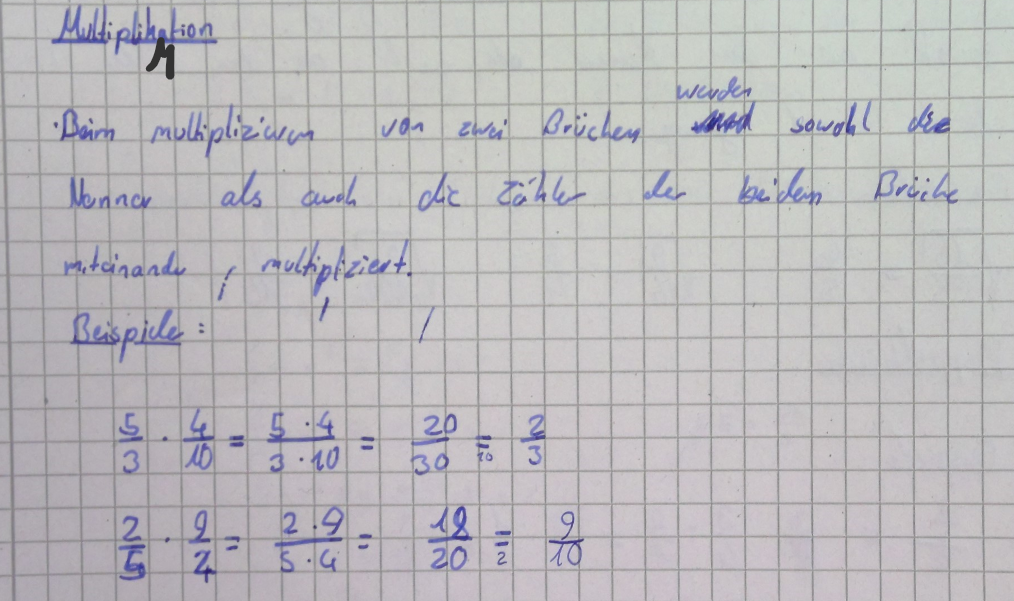 Multiplikation
M
·Beim multiplizieren von zwei Brüchen werden sowohl die
Nenner als auch die Zähler der beiden Brüche
miteinander multipliziert.
Beispiele:
5/3 · 4/10 = 5 · 4 / 3 · 10 = 20/30 =10 2/3
2/5 · 9/4 = 2 · 9 / 5 · 4 = 18/20 =2 9/10